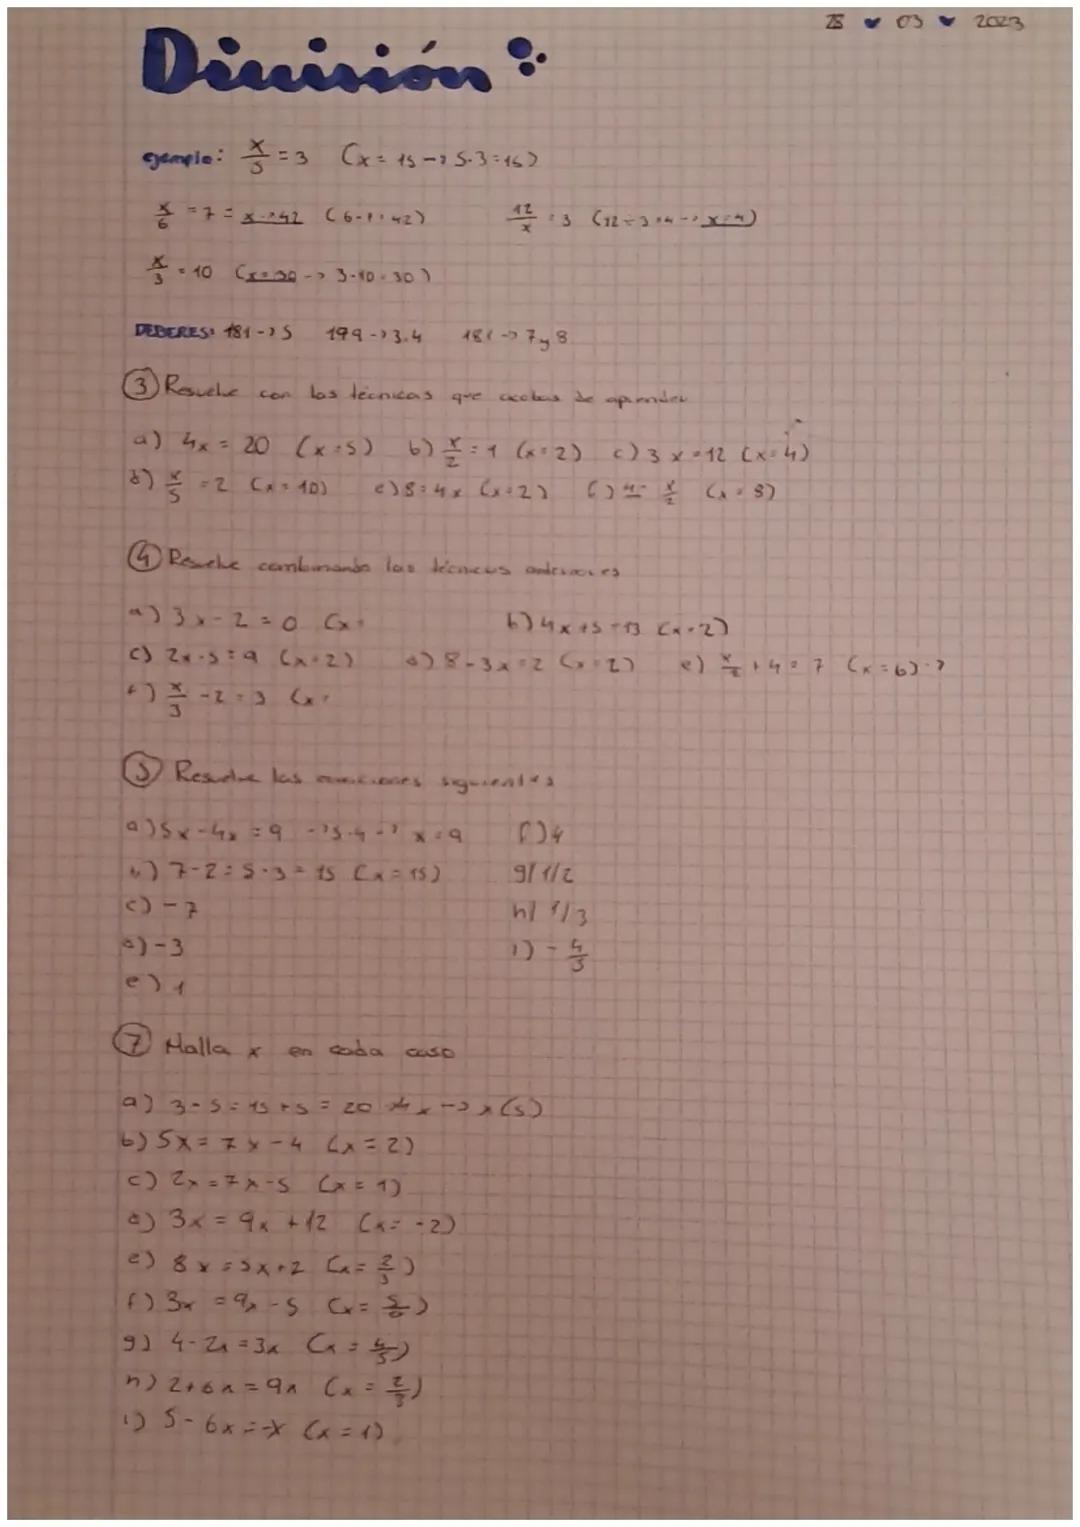 28 03 2023
División:
ejemplo: x/5 = 3 (x = 15 -> 5·3 = 15)
x/6 = 7 = x -> 42 (6·7 = 42) 12/x = 3 (12 ÷ 3 = 4 -> x = 4)
x/3 = 10 (x = 30 -> 3·10 = 30)
DEBERES: 181 -> 5 199 -> 3.4 181 -> 7 y 8
③ Resuelve con las técnicas que acabas de aprender
a) 4x = 20 (x = 5) b) x/2 = 1 (x = 2) c) 3x = 12 (x = 4)
d) x/5 = 2 (x = 10) e) 8 = 4x (x = 2) f) 4 = x/2 (x = 8)
④ Resuelve combinando las técnicas anteriores
a) 3x - 2 = 0 (x =
b) 4x + 5 = 13 (x = 2)
c) 2x - 5 = 9 (x = 2) d) 8 - 3x = 2 (x = 2) e) x/2 + 4 = 7 (x = 6)
f) x/3 - 2 = 3 (x =
⑤ Resuelve las ecuaciones siguientes
a) 5x - 4x = 9 -> 5-4 -> x = 9 f) 4
b) 7 - 2 = 5·3 = 15 (x = 15) g) 1/2
c) - 7 h) 1/3
d) - 3 i) - 4/3
e) 1
⑦ Halla x en cada caso
a) 3·5 = 15 + 5 = 20 4x -> x (5)
b) 5x = 7x - 4 (x = 2)
c) 2x = 7x - 5 (x = 1)
d) 3x = 9x + 12 (x = -2)
e) 8x = 5x + 2 (x = 2/3)
f) 3x = 9x - 5 (x = 5/6)
g) 4 - 2x = 3x (x = 4/5)
h) 2 + 6x = 9x (x = 2/3)
i) 5 - 6x = -x (x = 1)